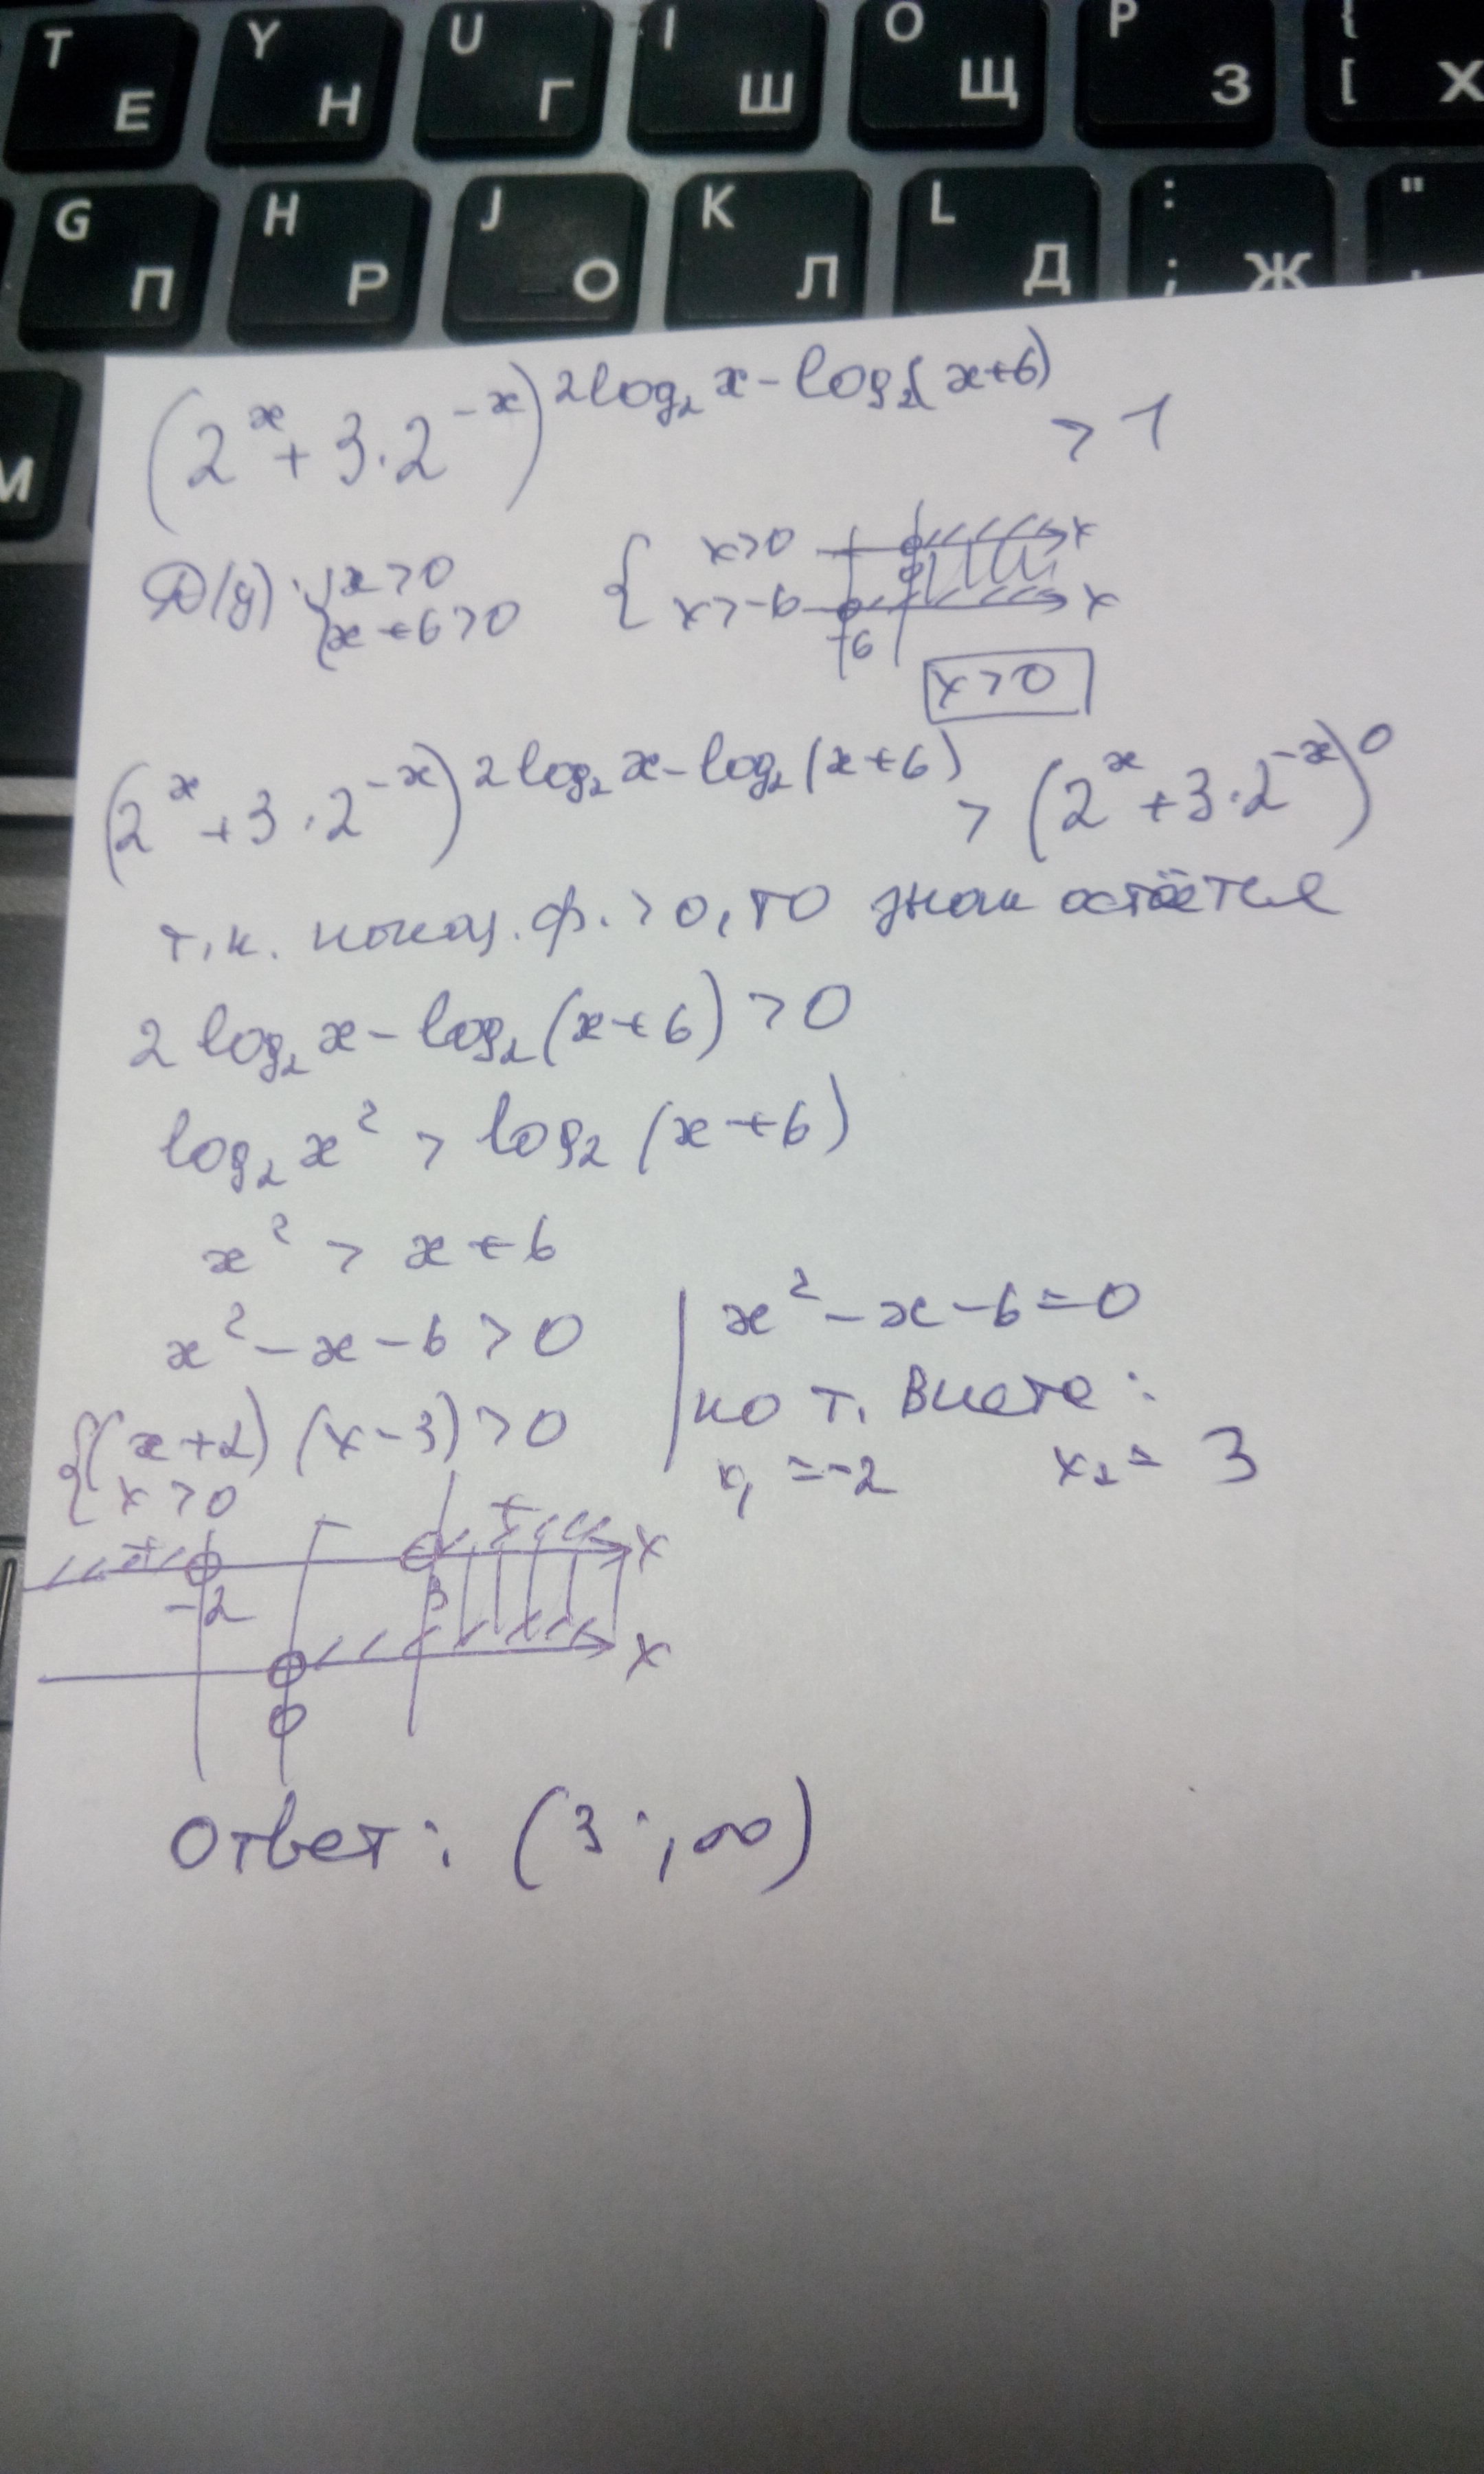 T Е Y Н U Г I Ш O Щ P З { [ Х
G П H Р J О K Л L Д : ; Ж "
М
(2^x + 3·2^-x)^2log₂x - log₂(x+6) > 1
D(y): { x>0 { x>0 x
x+6>0 x>-6 x
-6 0
x>0
(2^x + 3·2^-x)^2log₂x - log₂(x+6) > (2^x + 3·2^-x)^0
т.к. показ. ф. >0, то знак остаётся
2log₂x - log₂(x+6) > 0
log₂x² > log₂(x+6)
x² > x+6
x² - x - 6 > 0 | x² - x - 6 = 0
{(x+2)(x-3) > 0 | по т. Виета:
x>0 x₁ = -2 x₂ = 3
+ - + x
-2 3
x
0
Ответ: (3; ∞)